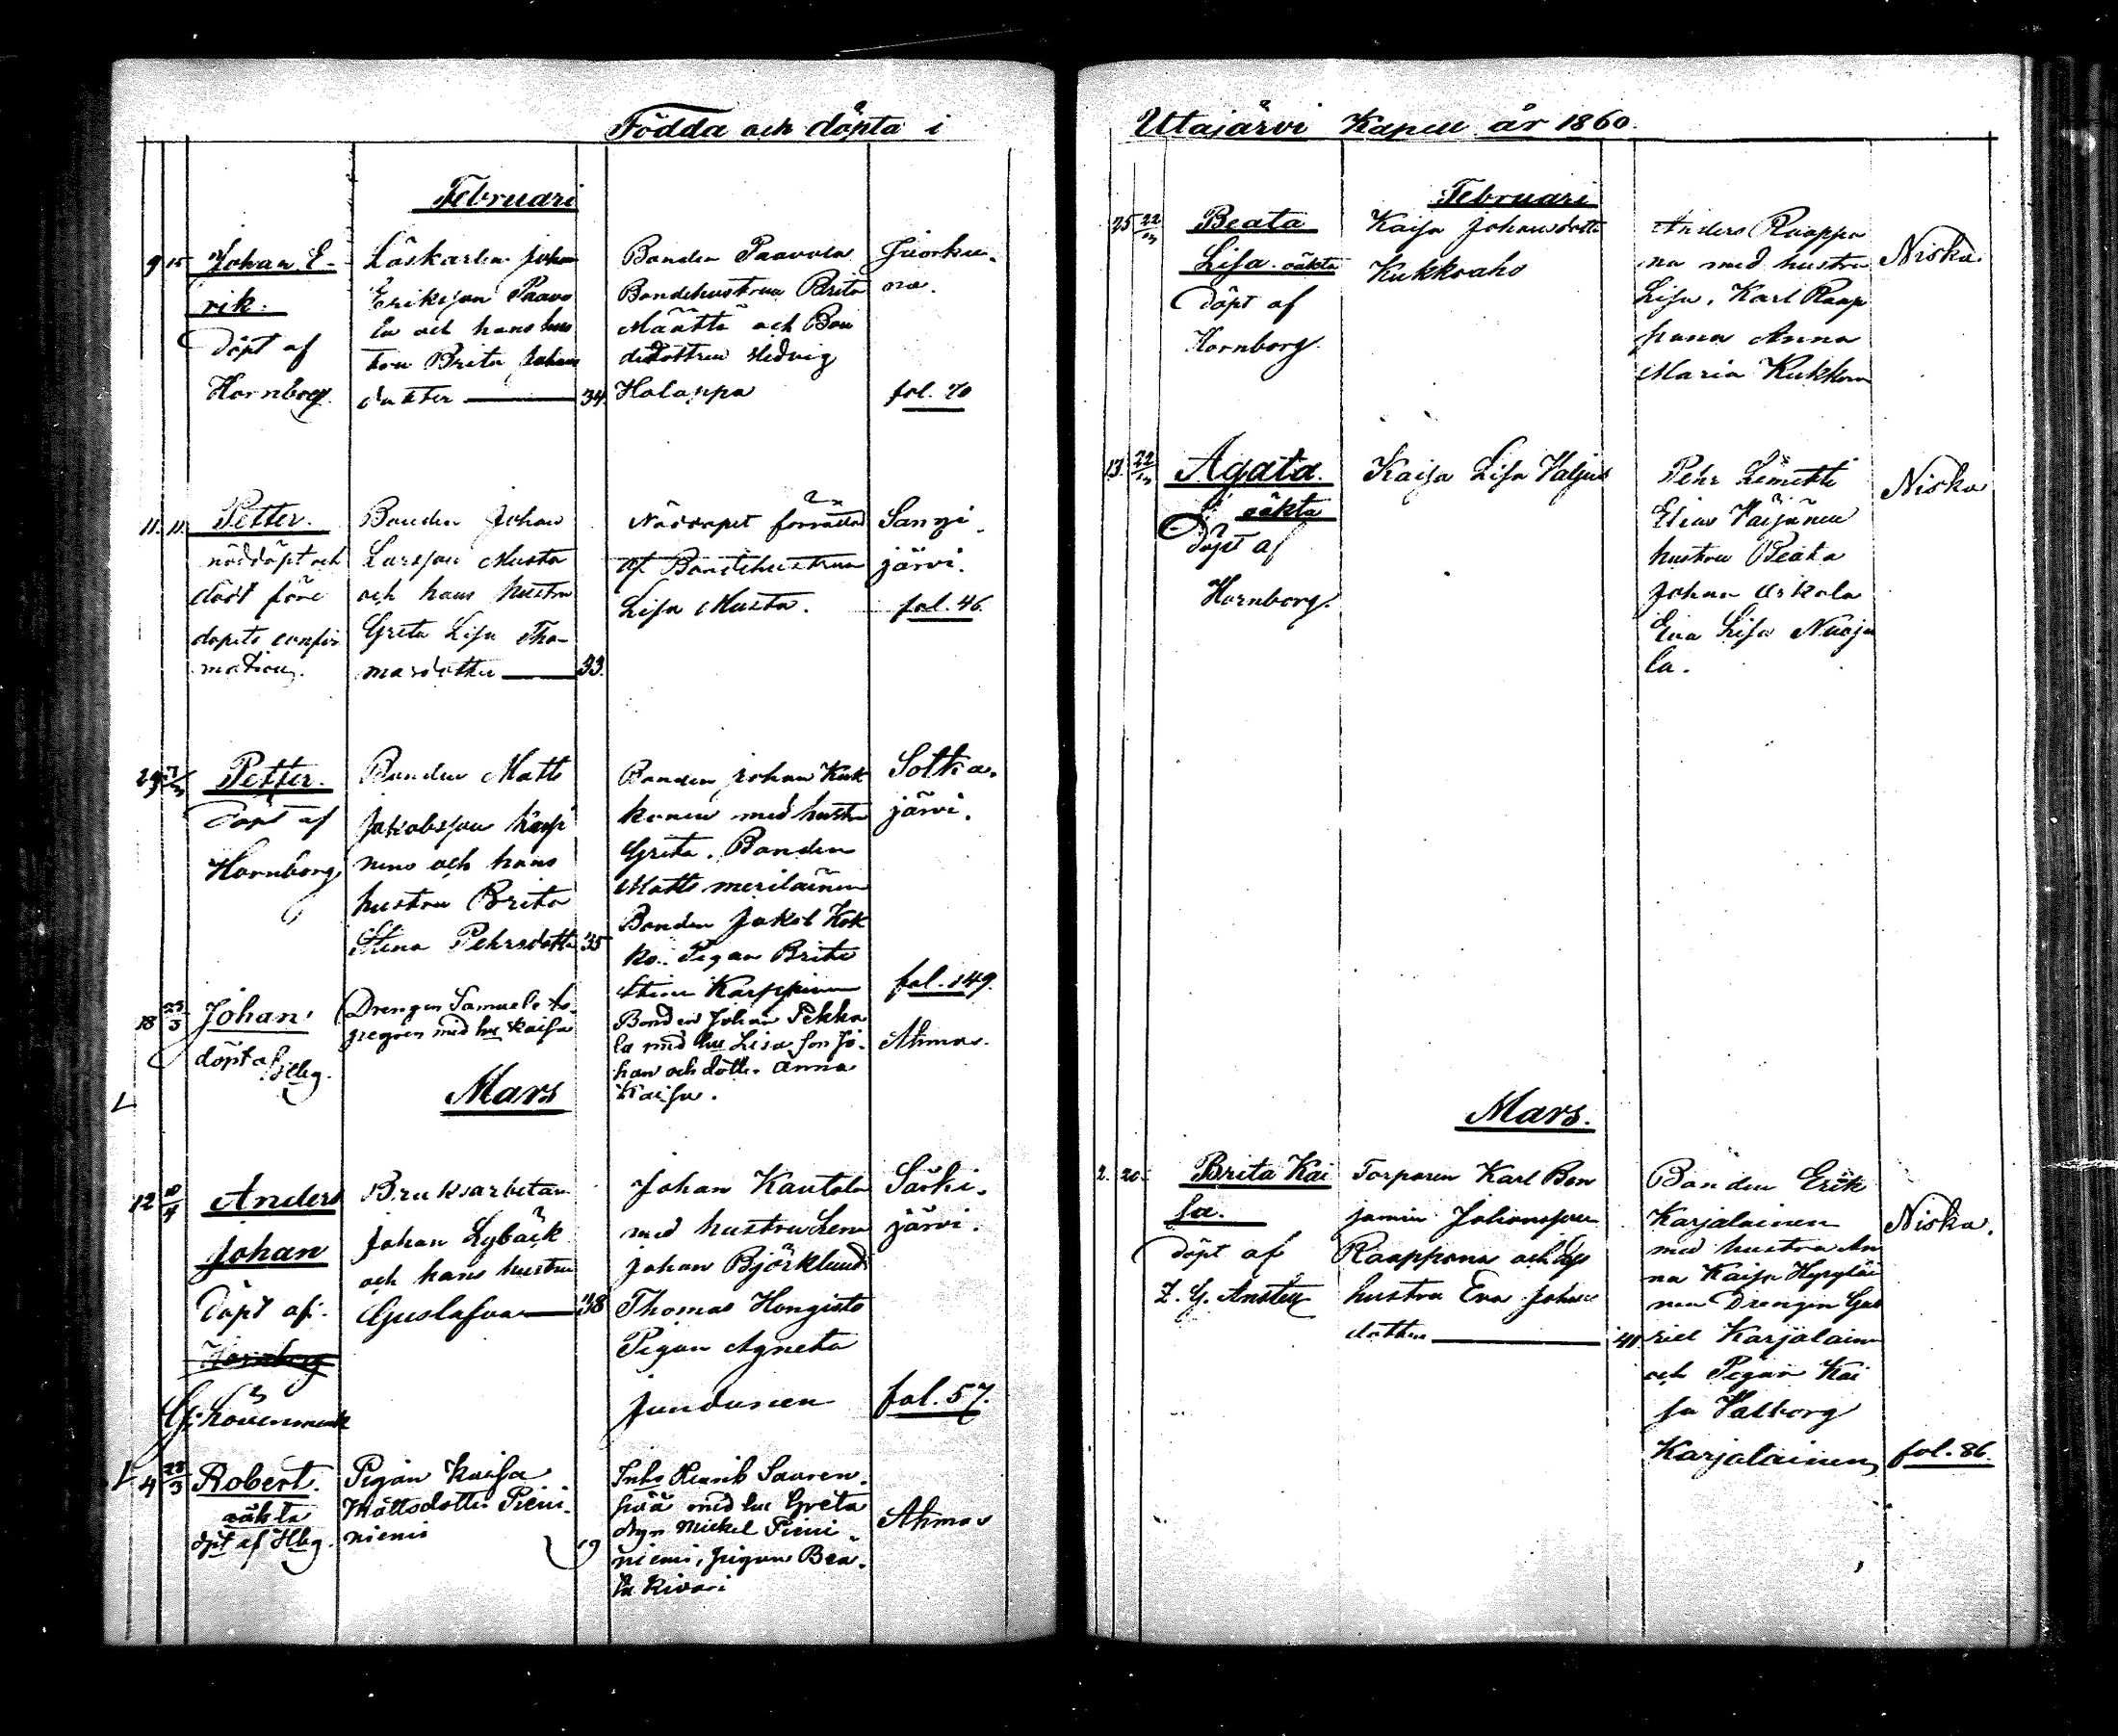 Födda och döpta i
Februari
9 15 Johan E-
rik.
döpt af
Hornborg.
Löskarlen Johan
Eriksson Paavo
la och hans hus
tru Brita Johans
dotter 34
Bonden Paavola
Bondehustrun Brita
Määttä och Bon
dedottren Hedvig
Holappa
Juorku-
na.
fol. 70
11. 11. Petter.
nöddöpt och
död före
dopets confir
mation.
Bonden Johan
Larsson Musta
och hans hustru
Greta Lisa Tho-
masdotter 33.
Nöddopet förrättad
af Bondehustrun
Lisa Musta.
Sangi-
järvi.
fol. 46.
29 Petter.
döpt af
Hornborg
Bonden Matts
Jakobsson
och hans
hustru Brita
Stina Pehrsdotter 35
Bonden Johan Kuk
konen med hustru
Greta. Bonden
Matts meriläinen
Bonden Jakob Kok
ko. Pigan Brita
Stina Karppinen
Sotka-
järvi.
fol. 149.
18 25/3 Johan.
döpt af Hbg.
Drengen Samuel
med hu Kaisa
Bonden Johan Pekka
la med hu Lisa, son Jo-
han och dotter Anna
Kaisa.
Ahmas.
Mars
12 Anders
Johan
döpt af:
Hornborg
Lovenmark
Bruksarbetaren
Johan Lybäck
och hans hustru
Gustafva 38
Johan Kautola
med hustru Lena
Johan Björklund
Thomas Hongisto
Pigan Agneta
Jundunen
Särki-
järvi.
fol. 57.
4 28/3 Robert.
oäkta
dpt af Hbg.
Pigan Kaisa
Mattsdotter Pieni-
niemi 19
Inhs Henrik Sauren-
pää med hu Greta
dgn Mickel Pieni-
niemi, pigan Bea-
ta Kivari
Ahmas
Utajärvi Kapell år 1860.
Februari
25 Beata
Lisa. oäkta
döpt af
Hornborg.
Kaisa Johansdotter
Kukkoaho
Anders Raappa
na med hustru
Lisa, Karl Raap
pana Anna
Maria Kukkon
Niska.
13. Agata.
oäkta
döpt af
Hornborg.
Kaisa Lisa Valjus
Pehr Limetti
Elias Väijänen
hustru Beata
Johan Arkala
Eva Lisa Nuoja
la.
Niska
Mars.
2. 20. Brita Kai
sa.
döpt af
Z. G. Ansten
Torparen Karl Ben
jamin Johansson
Raappana och
hustru Eva Johans
dotter 41
Bonden Erik
Karjalainen
med hustru An
na Kaisa Hyryläi
nen Drengen Gab
riel Karjalainen
och Pigan Kai
sa Valborg
Karjalainen
Niska.
fol. 86.